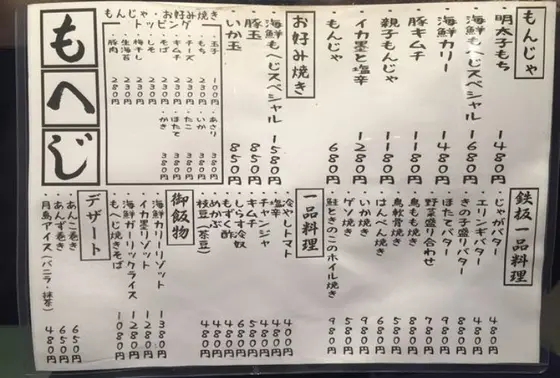 もんじゃ
・明太子もち 1480円
・海鮮もへじスペシャル 1680円
・海鮮カリー 1480円
・豚キムチ 1180円
・親子もんじゃ 1180円
・イカ墨と塩辛 1280円
・もんじゃ 680円
お好み焼き
・海鮮もへじスペシャル 1580円
・豚玉 850円
・いか玉 850円
もんじゃ・お好み焼き
トッピング
・玉子 100円
・もち 230円
・チーズ 230円
・キムチ 230円
・そば 230円
・しそ 230円
・梅干し 230円
・生海苔 230円
・豚肉 280円
・あさり 380円
・いか 380円
・たこ 380円
・ほたて 380円
・かき 380円
もへじ
鉄板一品料理
・じゃがバター 480円
・エリンギバター 480円
・きのこ盛りバター 880円
・ほたてバター 880円
・野菜盛り合わせ 980円
・鳥もも焼き 780円
・鳥軟骨焼き
・はんぺん焼き 480円
・いか焼き 980円
・ゲソ焼き 580円
・鮭ときのこのホイル焼き 980円
一品料理
・冷やしトマト 400円
・塩辛 480円
・チャンジャ 480円
・キムチ 480円
・しらす冷奴 580円
・もずく酢 480円
・めかぶ 480円
・枝豆(茶豆) 480円
御飯物
・海鮮カリーリゾット 1380円
・イカ墨リゾット 1280円
・海鮮ガーリックライス 1280円
・もへじ焼きそば 1080円
デザート
・あんこ巻き 650円
・あんず巻き 650円
・月島アイス(バニラ・抹茶) 480円